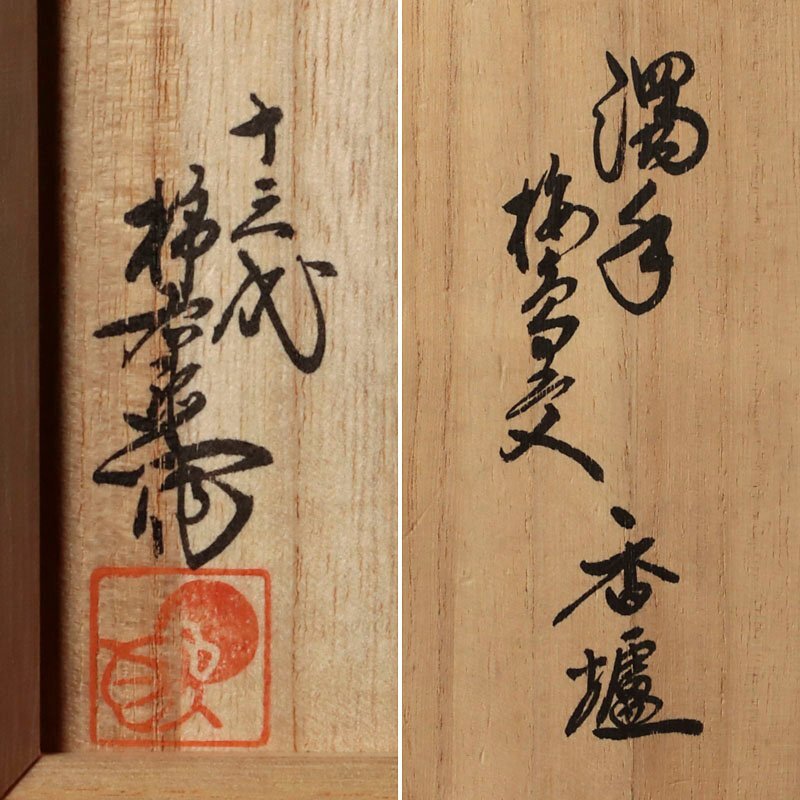 十三代
柿右衛門作
濁手
梅鳥文
香爐